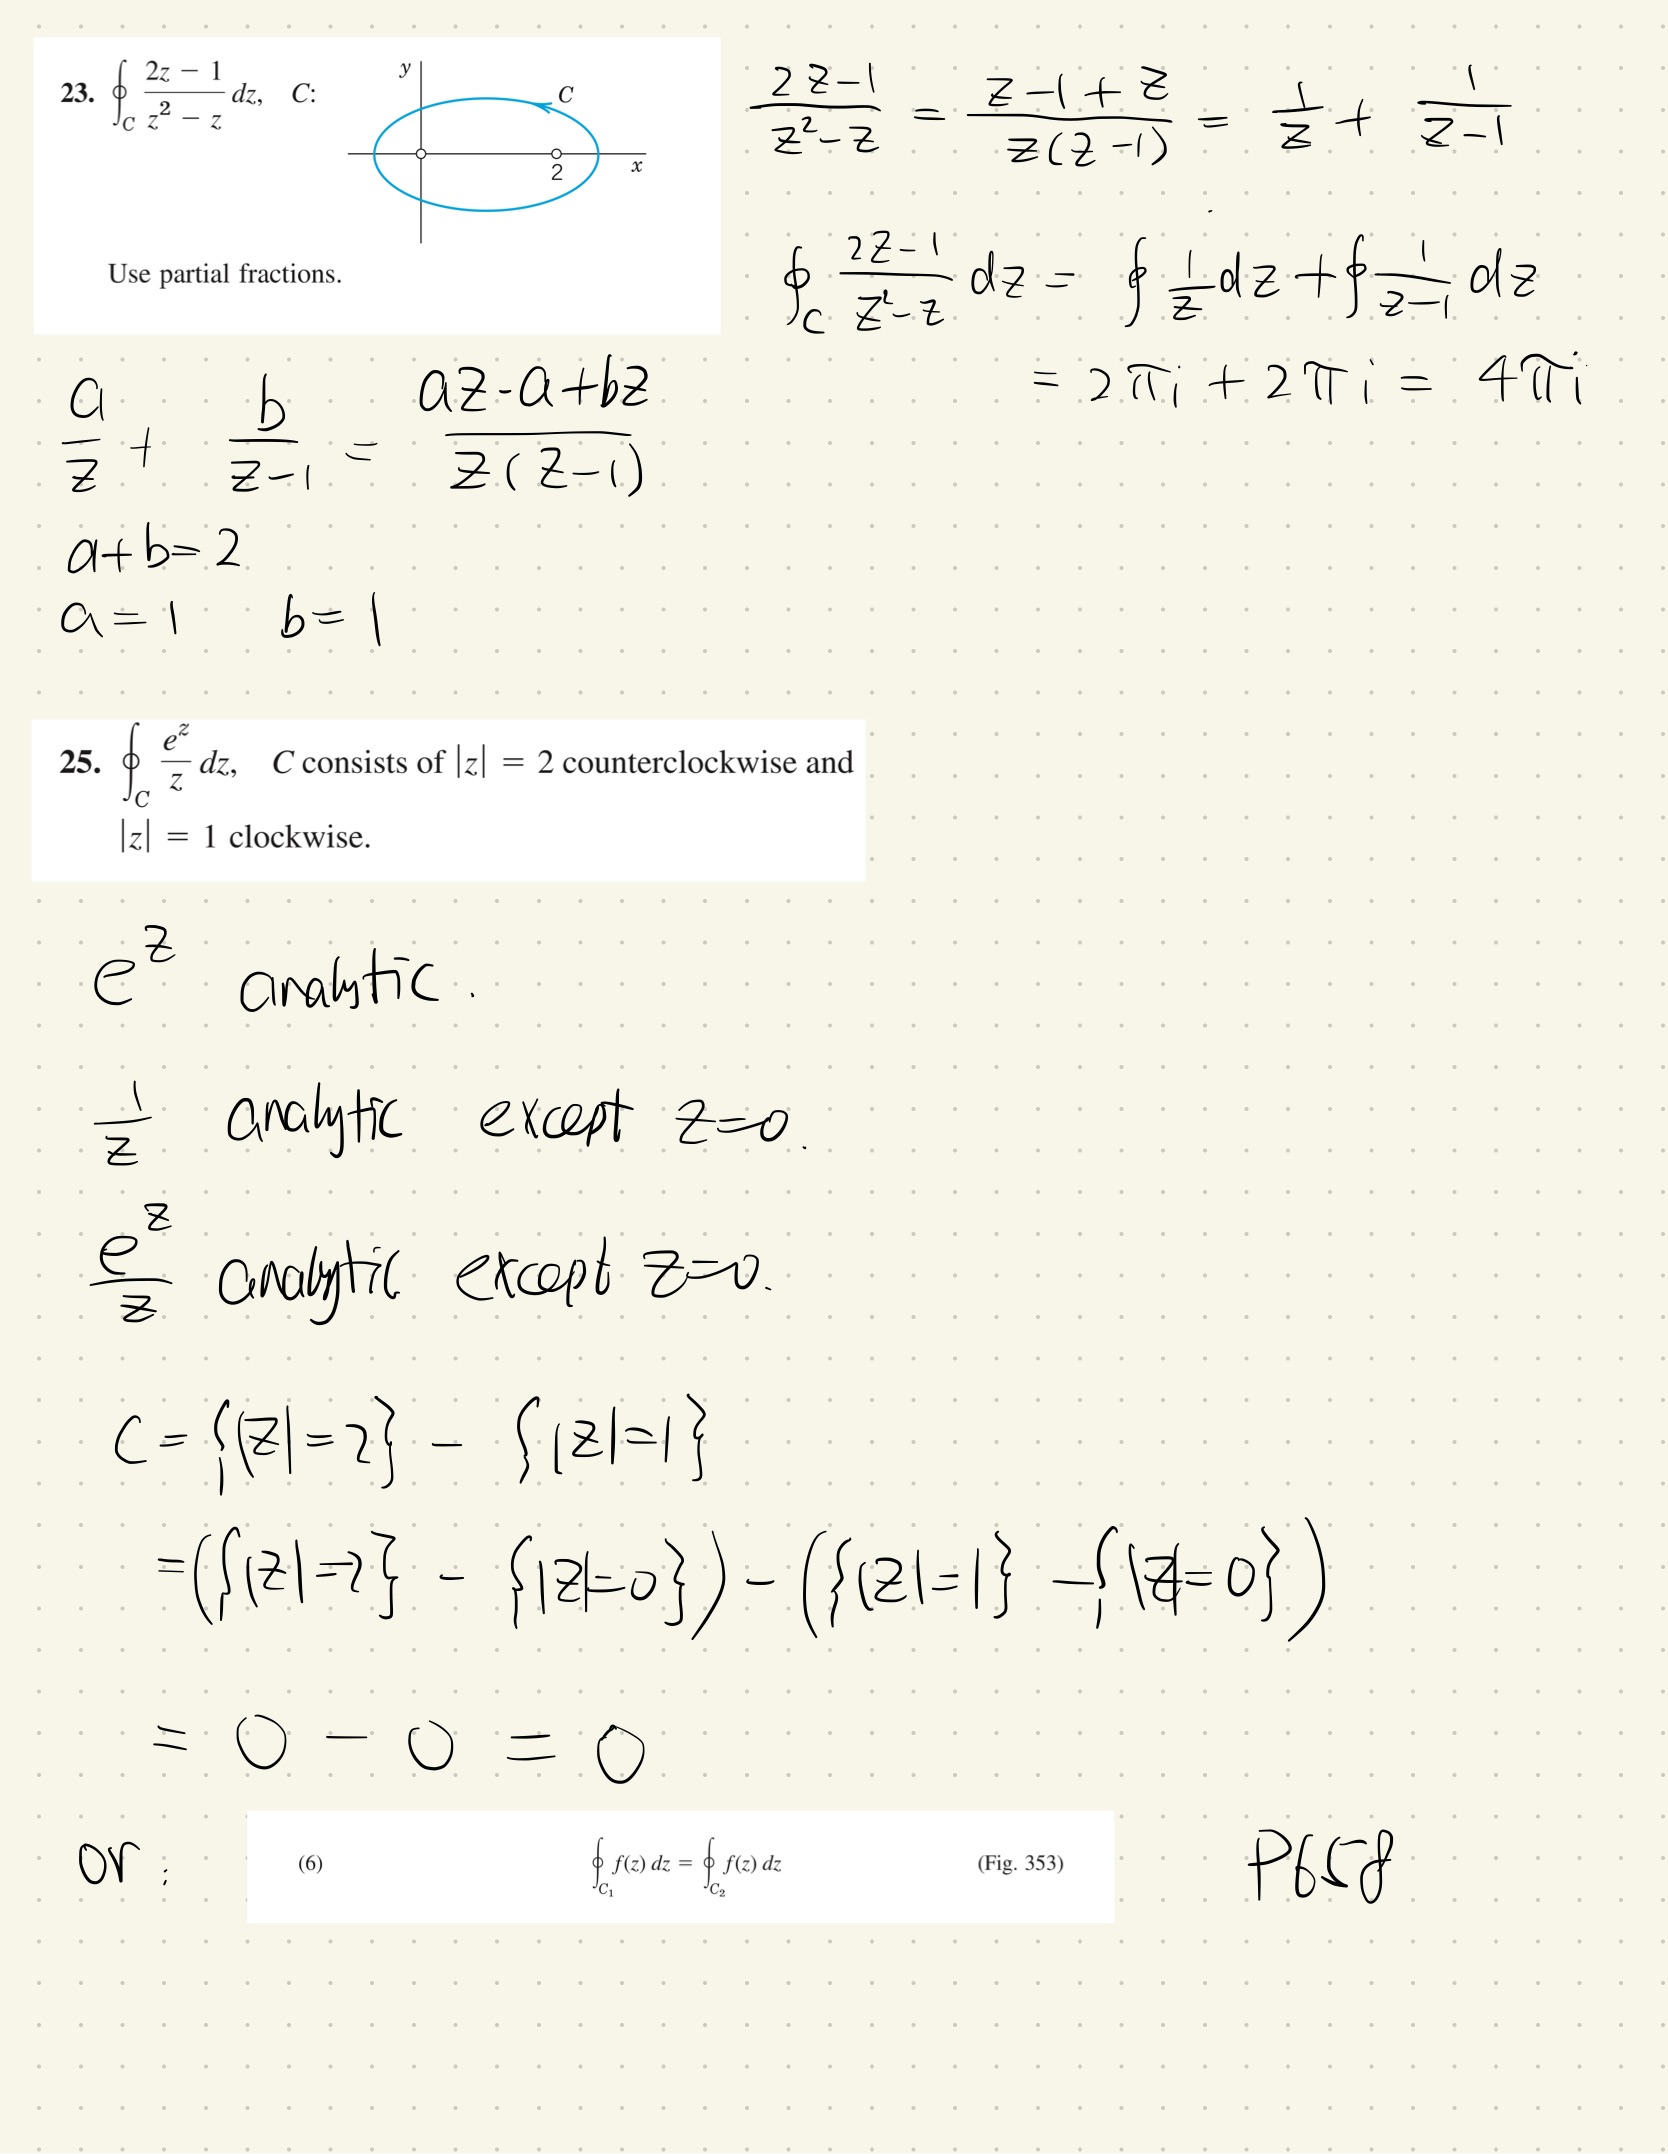 23. ∮_C (2z − 1)/(z² − z) dz, C:
y
C
2
x
Use partial fractions.
(2z−1)/(z²−z) = (z−1+z)/(z(z−1)) = 1/z + 1/(z−1)
∮_C (2z−1)/(z²−z) dz = ∮ 1/z dz + ∮ 1/(z−1) dz
= 2πi + 2πi = 4πi
a/z + b/(z−1) = (az-a+bz)/(z(z−1))
a+b=2
a=1 b=1
25. ∮_C e^z/z dz, C consists of |z| = 2 counterclockwise and
|z| = 1 clockwise.
e^z analytic.
1/z analytic except z=0.
e^z/z analytic except z=0.
C = {|z|=2} − {|z|=1}
=({|z|=2} - {|z|=0}) − ({|z|=1} − {|z|=0})
= 0 − 0 = 0
or :
(6) ∮_C₁ f(z) dz = ∮_C₂ f(z) dz (Fig. 353)
P658